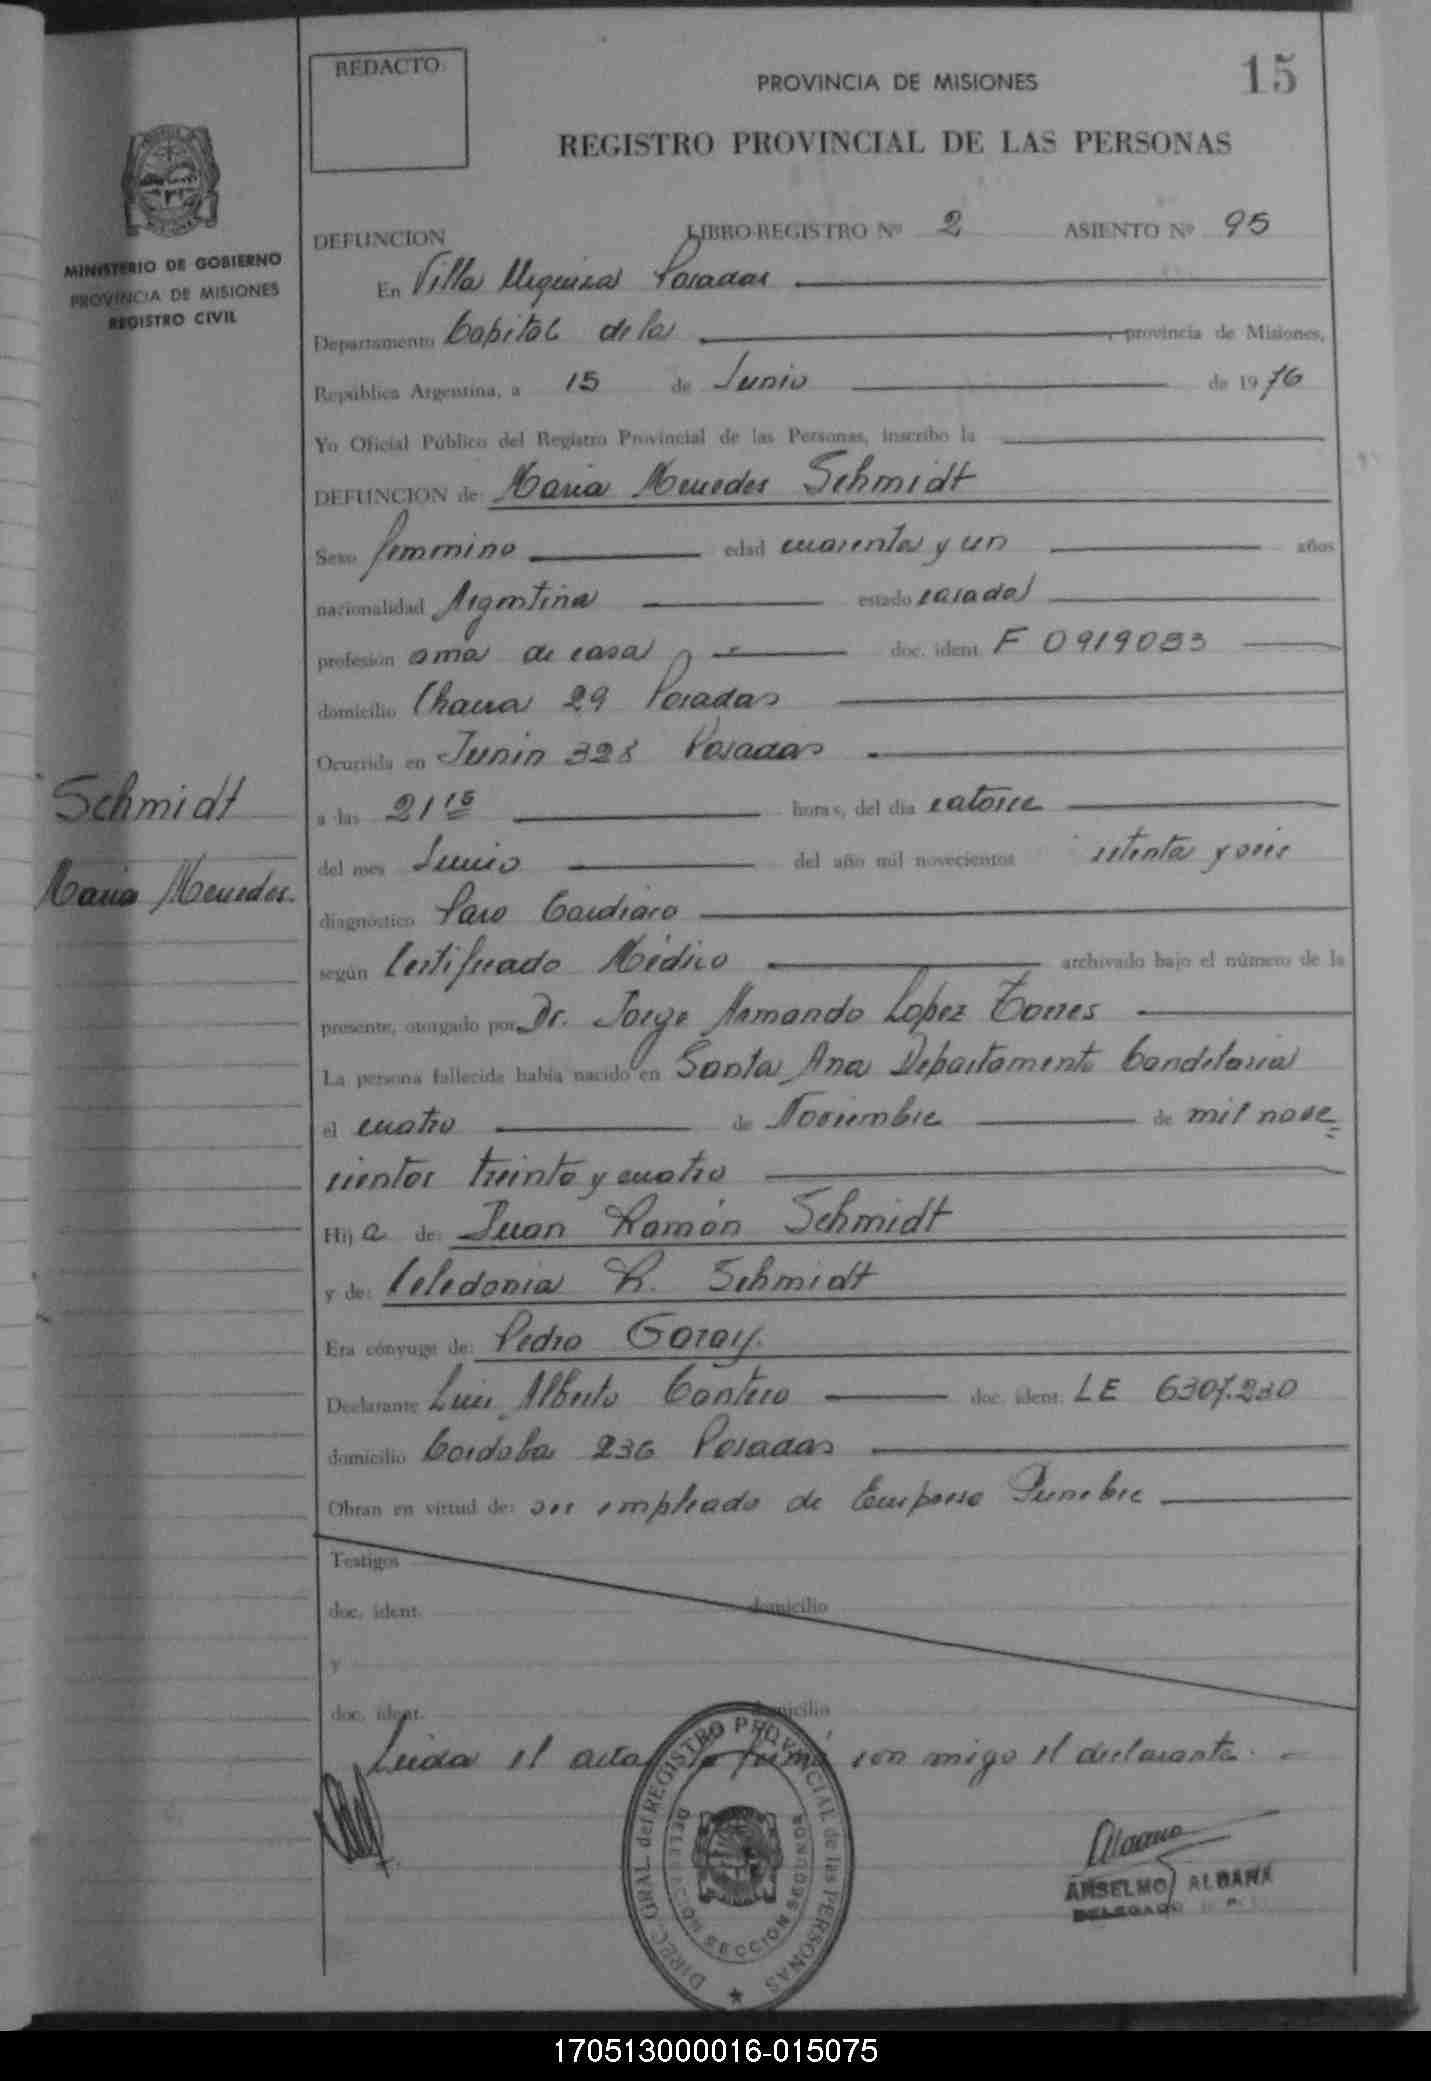 REDACTO
PROVINCIA DE MISIONES
15
REGISTRO PROVINCIAL DE LAS PERSONAS
MINISTERIO DE GOBIERNO
PROVINCIA DE MISIONES
REGISTRO CIVIL
DEFUNCION LIBRO-REGISTRO Nº 2 ASIENTO Nº 95
En Villa Urquiza Posadas
Departamento Capital de la , provincia de Misiones,
República Argentina, a 15 de Junio de 1976
Yo Oficial Público del Registro Provincial de las Personas, inscribo la
DEFUNCION de: Maria Mercedes Schmidt
Sexo femenino edad cuarenta y un años
nacionalidad Argentina estado casada
profesión ama de casa doc. ident. F 0919033
domicilio Chacra 29 Posadas
Ocurrida en Junin 328 Posadas
a las 21 15 horas, del día catorce
del mes Junio del año mil novecientos setenta y seis
diagnóstico Paro Cardiaco
según Certificado Médico archivado bajo el número de la
presente, otorgado por Dr. Jorge Armando Lopez Torres
La persona fallecida había nacido en Santa Ana Departamento Candelaria
el cuatro de Noviembre de mil nove=
cientos treinta y cuatro
Hija de: Juan Ramón Schmidt
y de: Celedonia R. Schmidt
Era cónyuge de: Pedro Garay.
Declarante Luis Alberto Cantero doc. ident. LE 6307.230
domicilio Cordoba 236 Posadas
Obran en virtud de: ser empleado de Empresa Funebre
Testigos
doc. ident. domicilio
y
doc. ident. domicilio
Leida el acta la firmó con migo el declarante.
Schmidt
Maria Mercedes.
DIREC. GRAL. del REGISTRO PROVINCIAL de las PERSONAS
DELEGACION SECCION SEGUNDA
ANSELMO ALDANA
DELEGADO
170513000016-015075